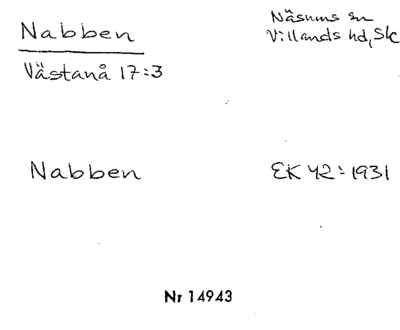 Nabben
Näsums sn
Villands hd, Sk
Västanå 17:3
Nabben
EK 42: 1931
Nr 14943